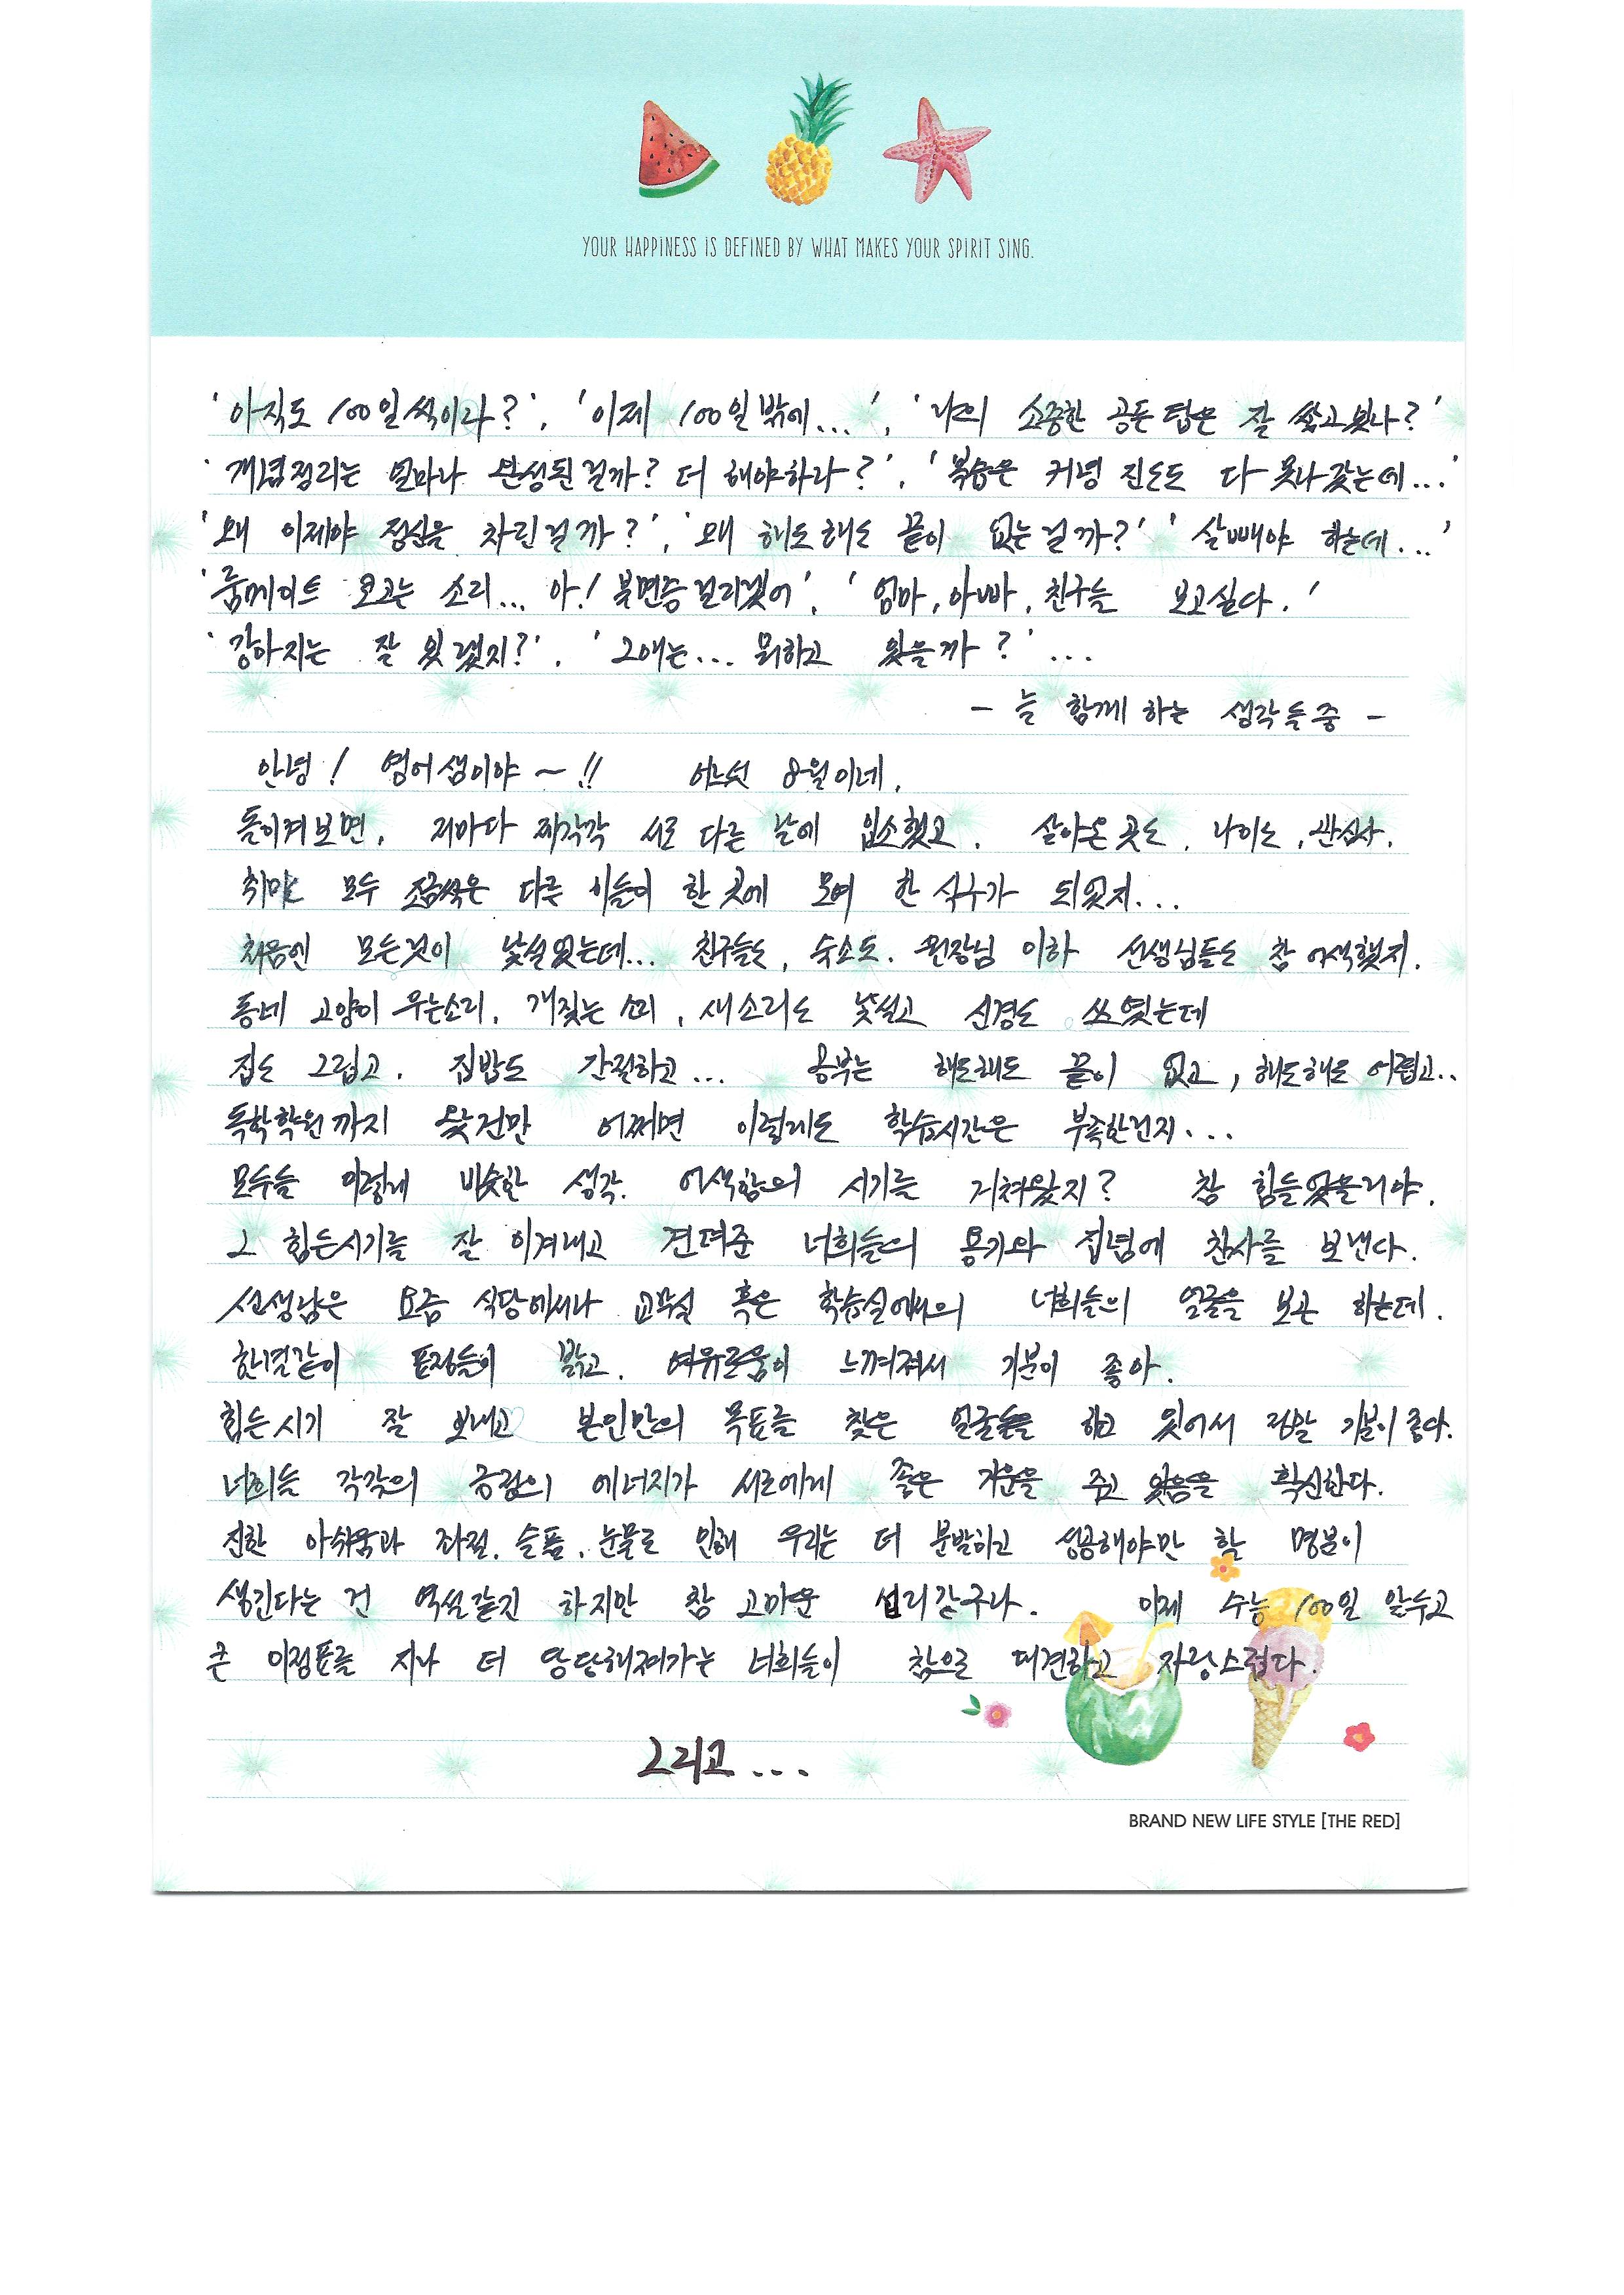 YOUR HAPPINESS IS DEFINED BY WHAT MAKES YOUR SPIRIT SING.
'아직도 100일씩이라?', '이제 100일밖에...', '나의 소중한 공든탑은 잘 쌓고있나?'
'개념정리는 얼마나 완성된걸까? 더 해야하나?', '복습은 커녕 진도도 다 못나갔는데...'
'왜 이제야 정신을 차린걸까?', '왜 해도해도 끝이 없는걸까?' '살빼야 하는데...'
'룸메이트 코고는 소리... 아! 불면증걸리겠어', '엄마, 아빠, 친구들 보고싶다.'
'강아지는 잘 있겠지?', '그애는... 뭐하고 있을까?' ...
- 늘 함께 하는 생각들중 -
안녕! 영어샘이야~!! 어느덧 8월이네.
돌이켜보면, 저마다 제각각 서로 다른 날에 입소했고, 살아온곳도, 나이도, 관심사,
취미도 모두 조금씩은 다른 이들이 한 곳에 모여 한 식구가 되었지...
처음엔 모든것이 낯설었는데... 친구들도, 숙소도, 원장님 이하 선생님들도 참 어색했지.
동네 고양이 우는소리, 개짖는 소리, 새소리도 낯설고 신경도 쓰였는데
집도 그립고, 집밥도 간절하고... 공부는 해도해도 끝이 없고, 해도해도 어렵고..
독학학원까지 왔건만 어쩌면 이렇게도 학습시간은 부족한건지...
모두들 이렇게 비슷한 생각, 어색함의 시기를 거쳐왔지? 참 힘들었을리야.
그 힘든시기를 잘 이겨내고 견뎌준 너희들의 용기와 집념에 찬사를 보낸다.
선생님은 요즘 식당에서나 교무실 혹은 학습실에서의 너희들의 얼굴을 보곤 하는데,
한결같이 표정들이 밝고, 여유로움이 느껴져서 기분이 좋아.
힘든시기 잘 보내고 본인만의 목표를 찾은 얼굴들을 하고 있어서 정말 기분이 좋다.
너희들 각각의 긍정의 에너지가 서로에게 좋은 기운을 주고 있음을 확신한다.
진한 아쉬움과 좌절, 슬픔, 눈물로 인해 우리는 더 분발하고 성공해야만 할 명분이
생긴다는 건 역설같긴 하지만 참 고마운 섭리같구나. 이제 수능 100일 앞두고
큰 이정표를 지나 더 당당해져가는 너희들이 참으로 대견하고 자랑스럽다.
그리고...
BRAND NEW LIFE STYLE [THE RED]